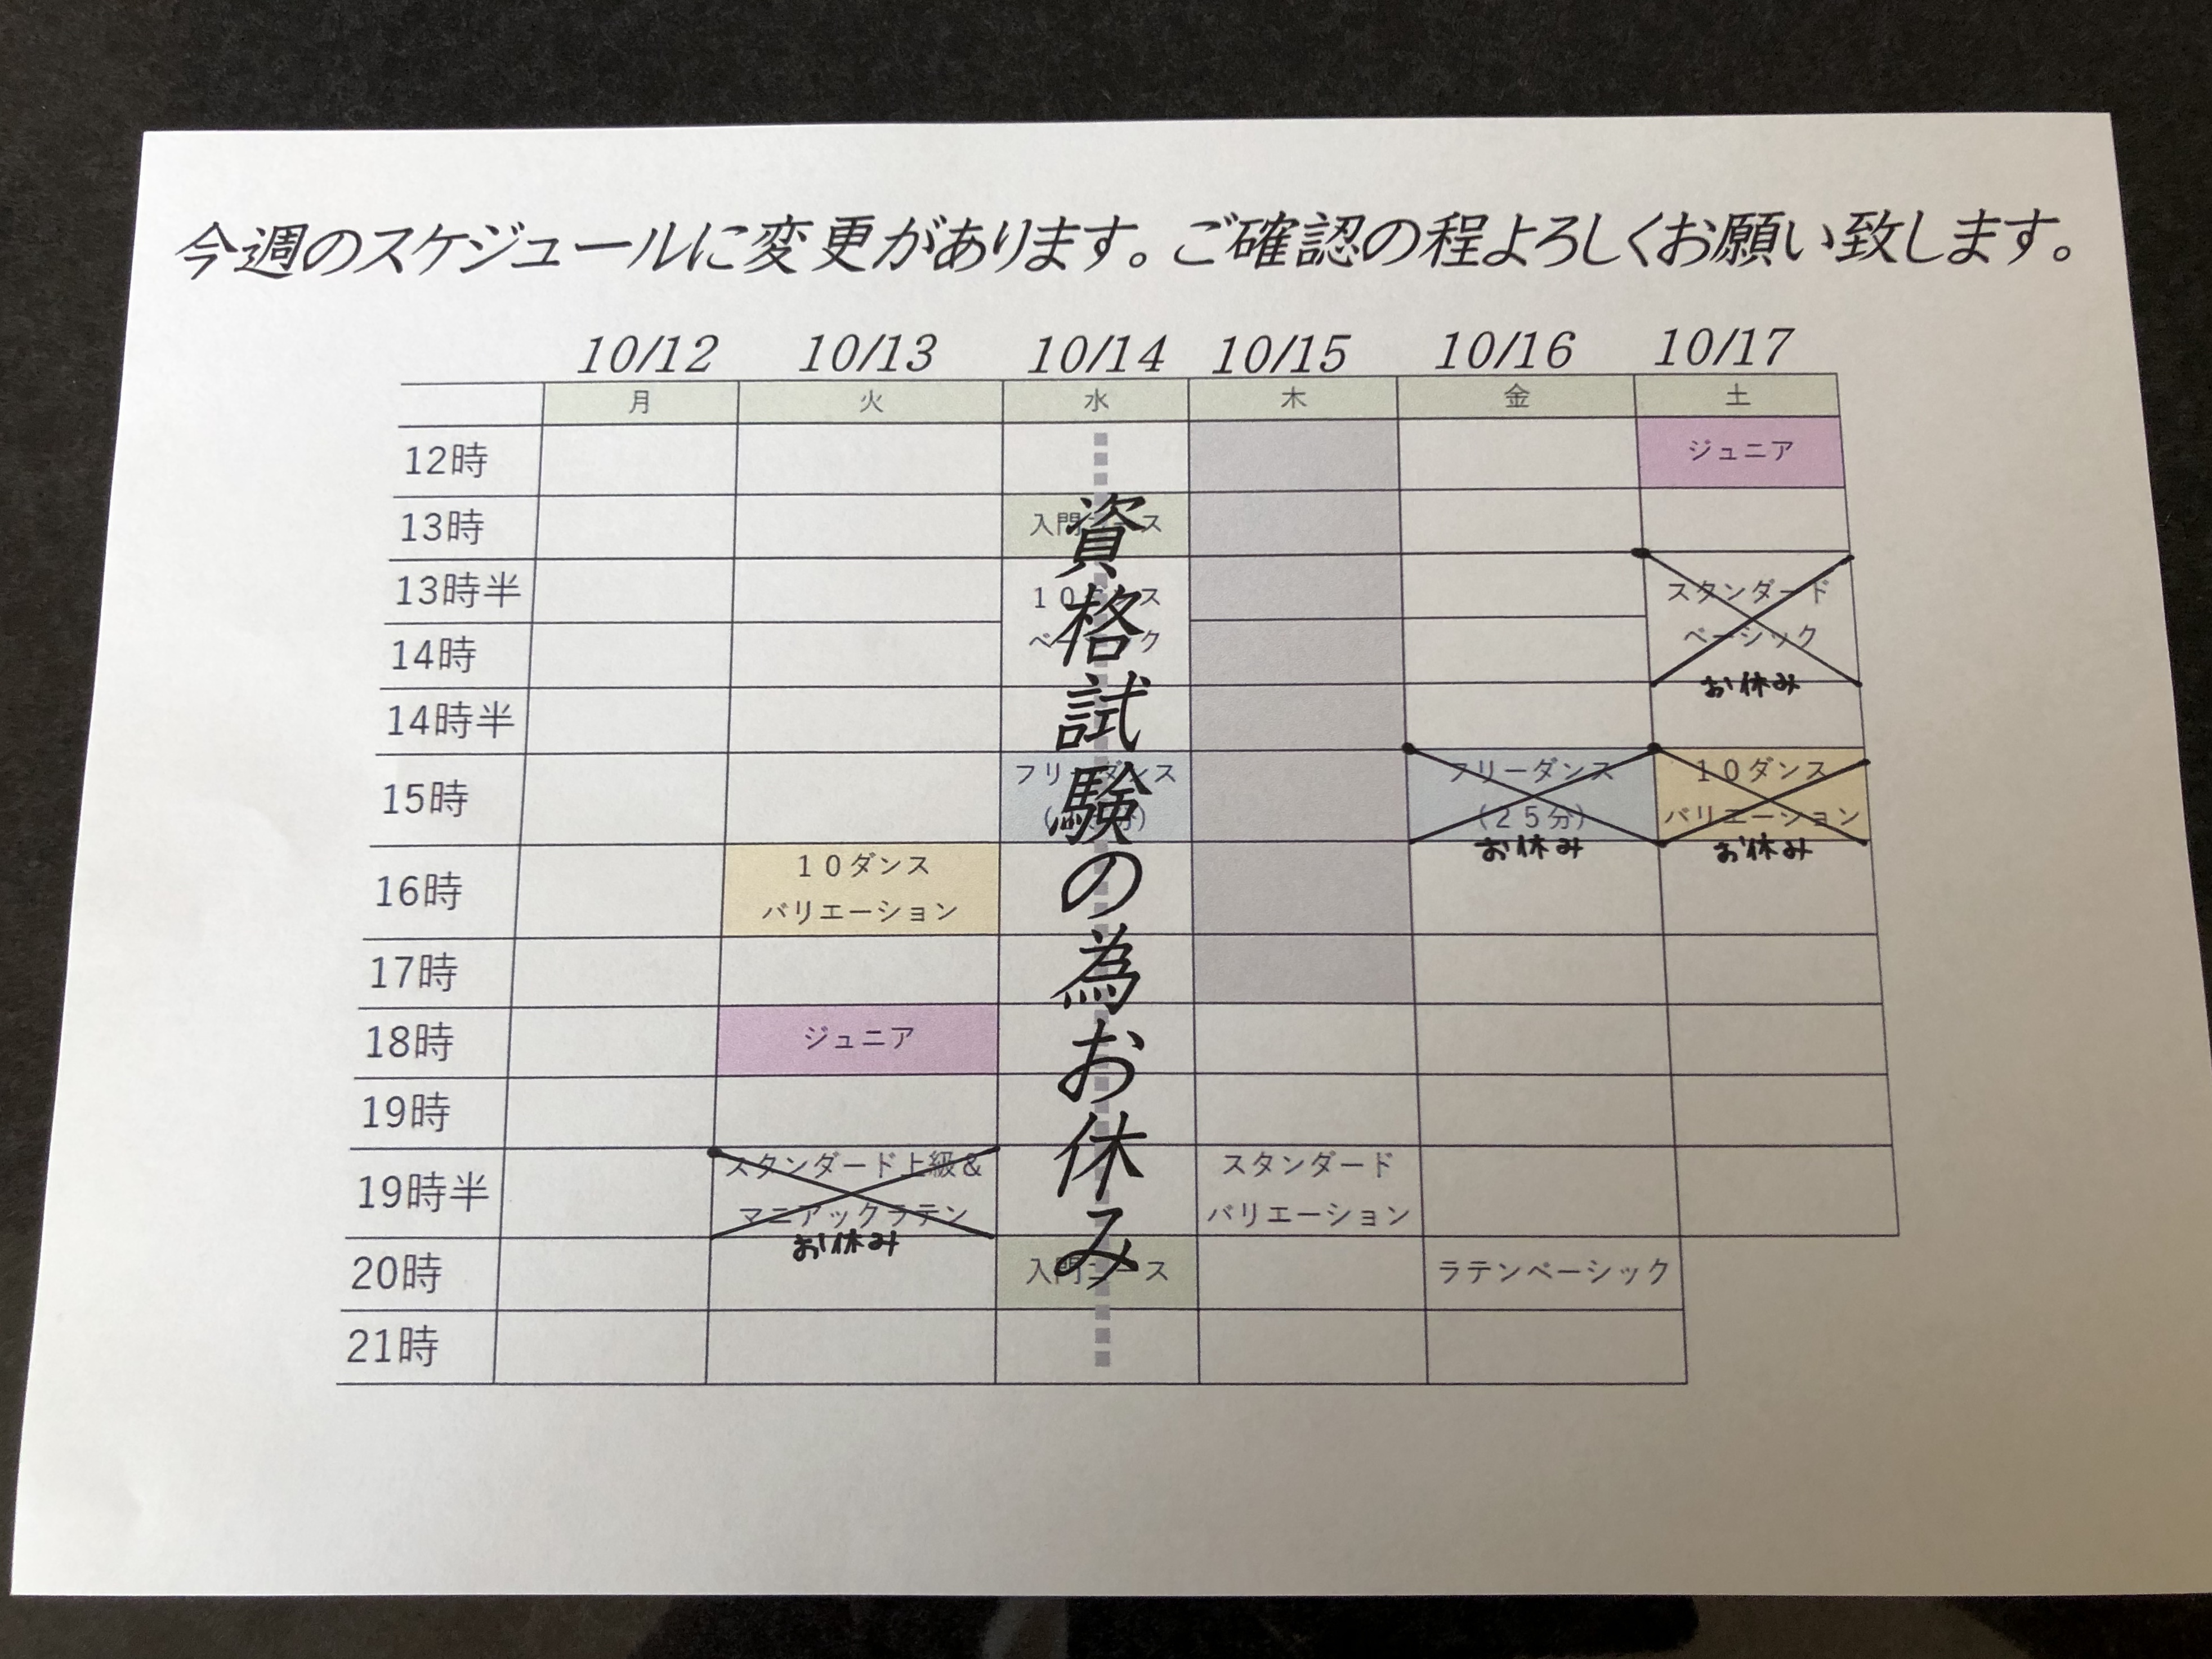 今週のスケジュールに変更があります。ご確認の程よろしくお願い致します。
10/12 10/13 10/14 10/15 10/16 10/17
月 火 水 木 金 土
12時 ジュニア
13時 入門コース
13時半 スタンダード
14時 ベーシック
お休み
14時半
15時 フリーダンス フリーダンス 10ダンス
(25分) バリエーション
お休み お休み
16時 10ダンス
バリエーション
17時
18時 ジュニア
19時
19時半 スタンダード上級& スタンダード
マニアックラテン バリエーション
お休み
20時 入門コース ラテンベーシック
21時
資格試験の為お休み